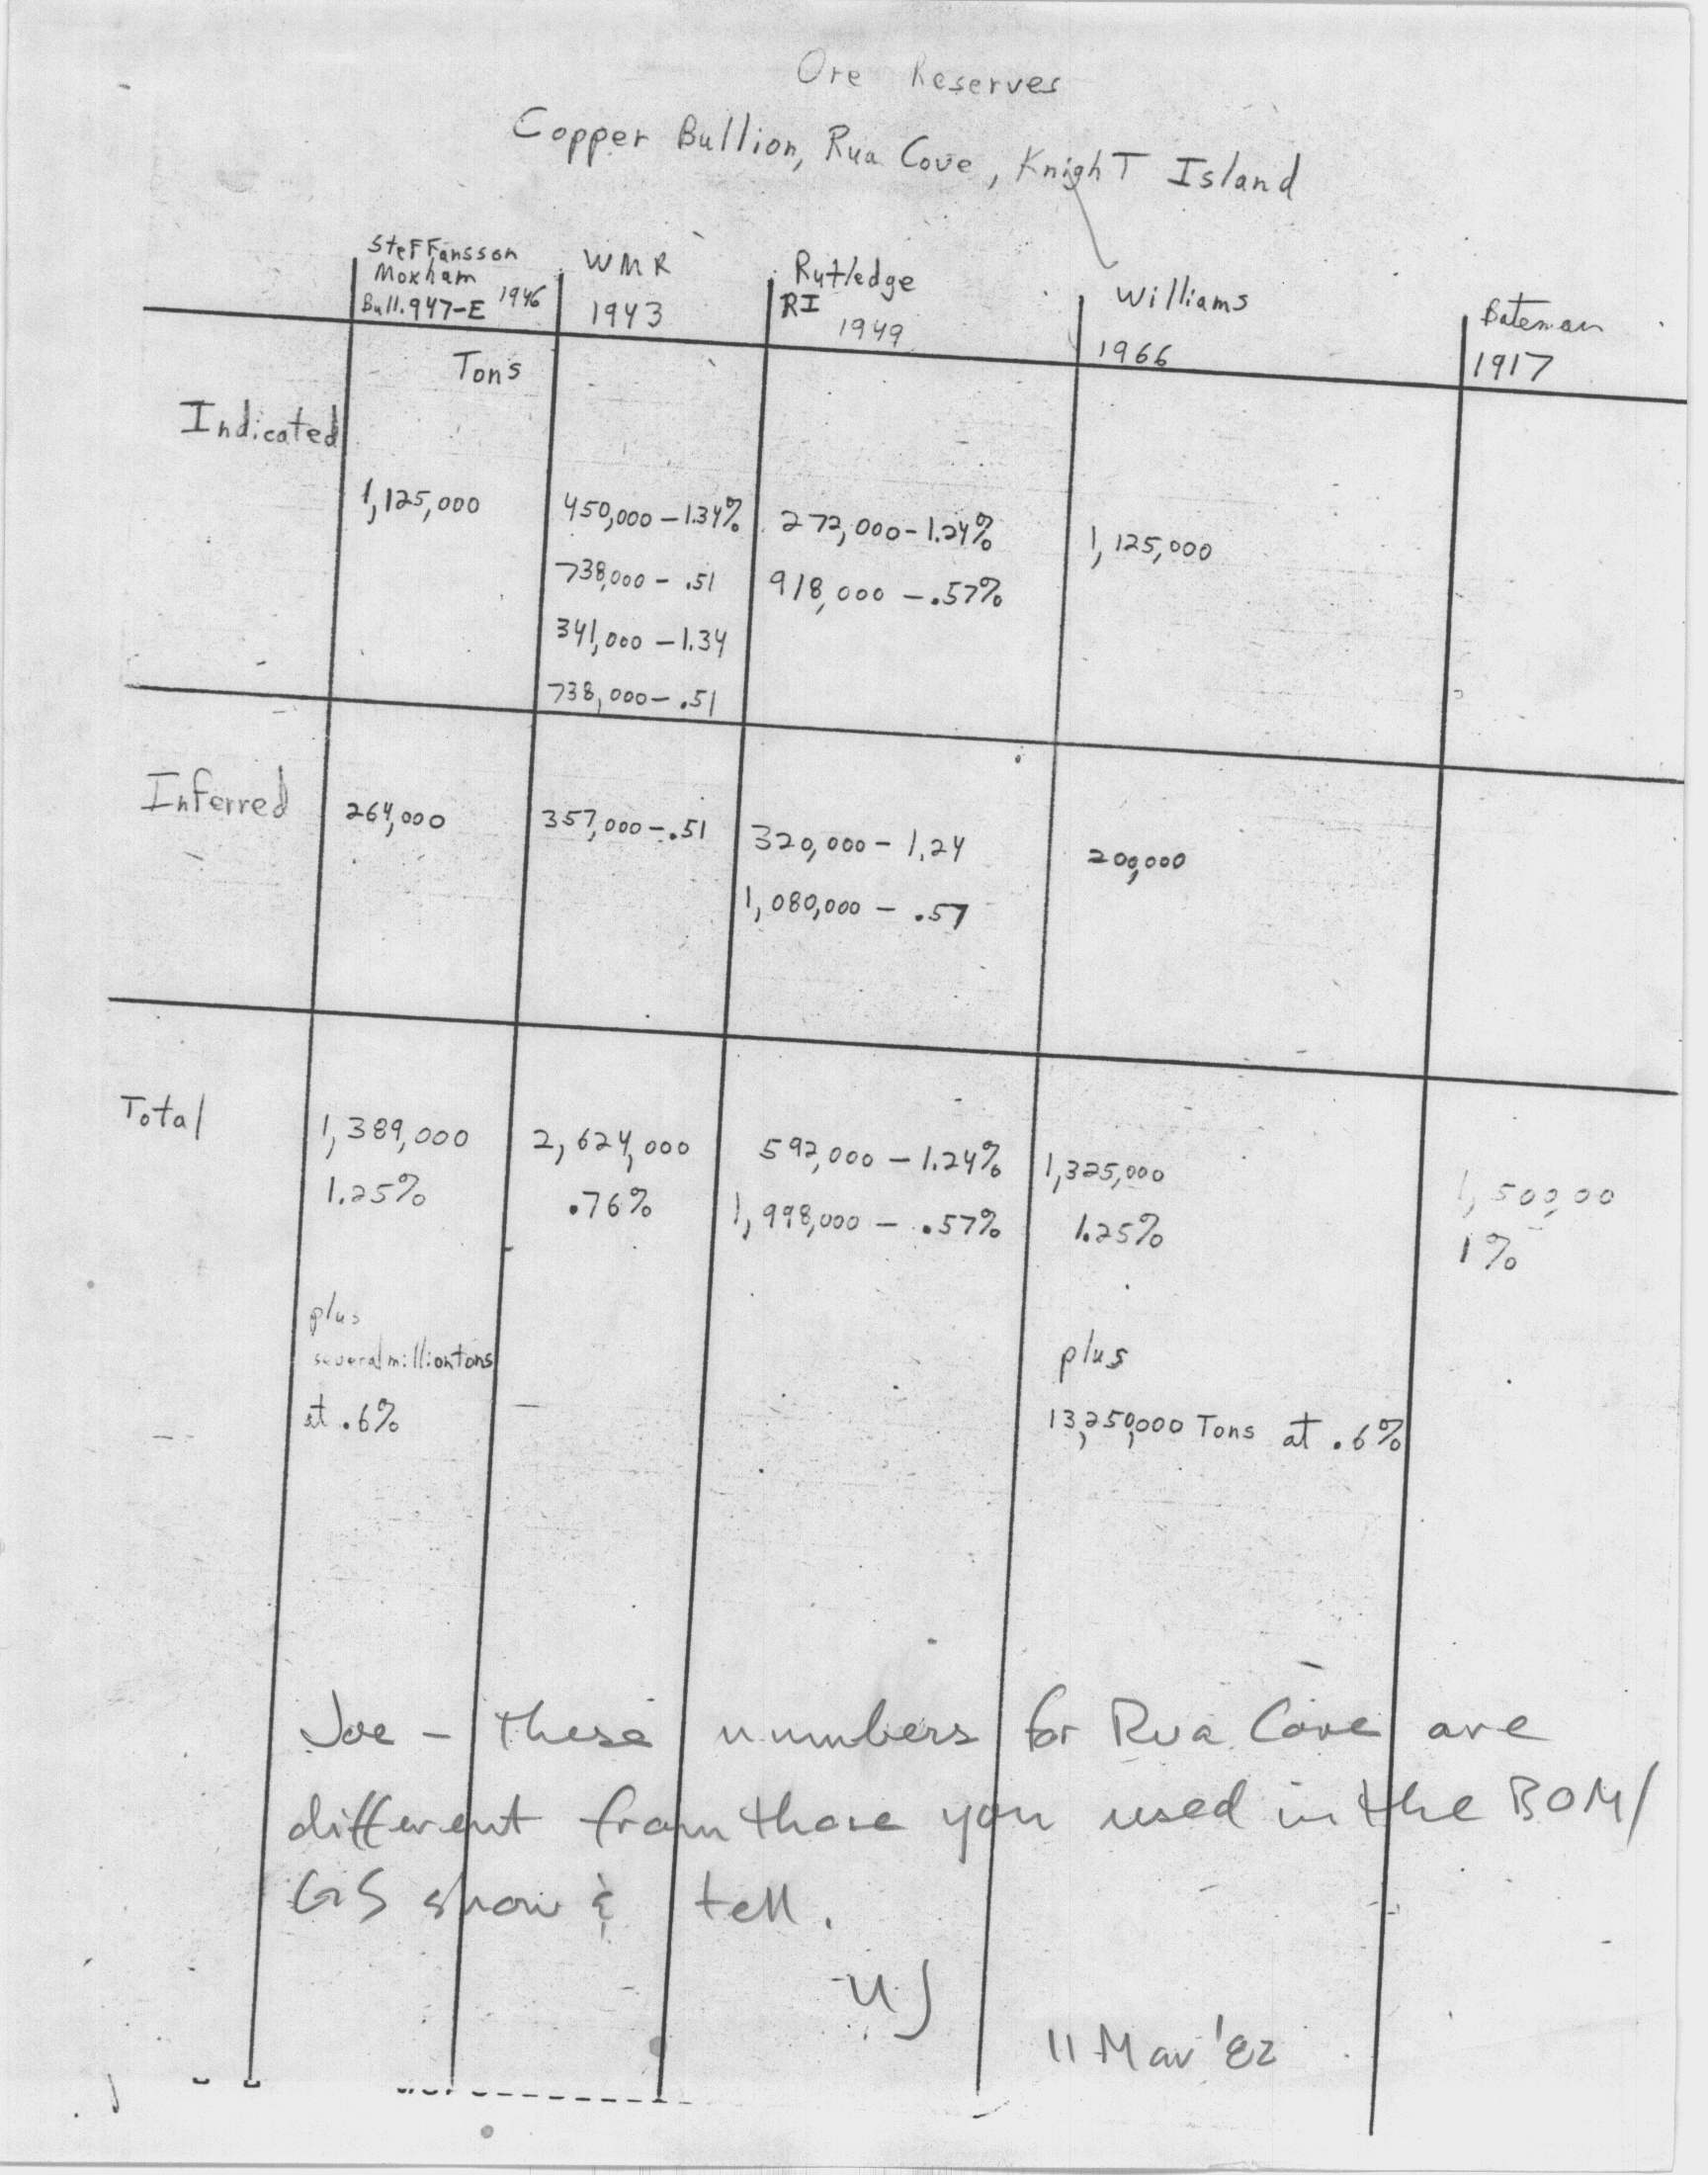 Ore Reserves
Copper Bullion, Rua Cove, Knight Island
Steffansson
Moxham
Bull. 947-E 1946
WMR
1943
Rutledge
RI
1949
Williams
1966
Bateman
1917
Tons
Indicated
1,125,000
450,000 - 1.34%
738,000 - .51
341,000 - 1.34
738,000 - .51
272,000 - 1.24%
918,000 - .57%
1,125,000
Inferred
264,000
357,000 - .51
320,000 - 1.24
1,080,000 - .57
200,000
Total
1,389,000
1.25%
plus
several million tons
at .6%
2,624,000
.76%
592,000 - 1.24%
1,998,000 - .57%
1,325,000
1.25%
plus
13,250,000 Tons at .6%
1,500,00
1%
Joe - these numbers for Rua Cove are
different from those you used in the BOM/
GS show & tell.
11 Mar '82